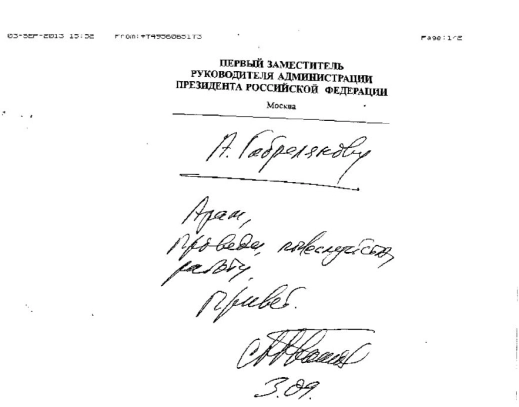 03-SEP-2013 15:32 From:+74956065173 Page:1/2
ПЕРВЫЙ ЗАМЕСТИТЕЛЬ
РУКОВОДИТЕЛЯ АДМИНИСТРАЦИИ
ПРЕЗИДЕНТА РОССИЙСКОЙ ФЕДЕРАЦИИ
Москва
А. Габрелянову
Арам,
проведи, пожалуйста,
работу.
Привет.
3.09.